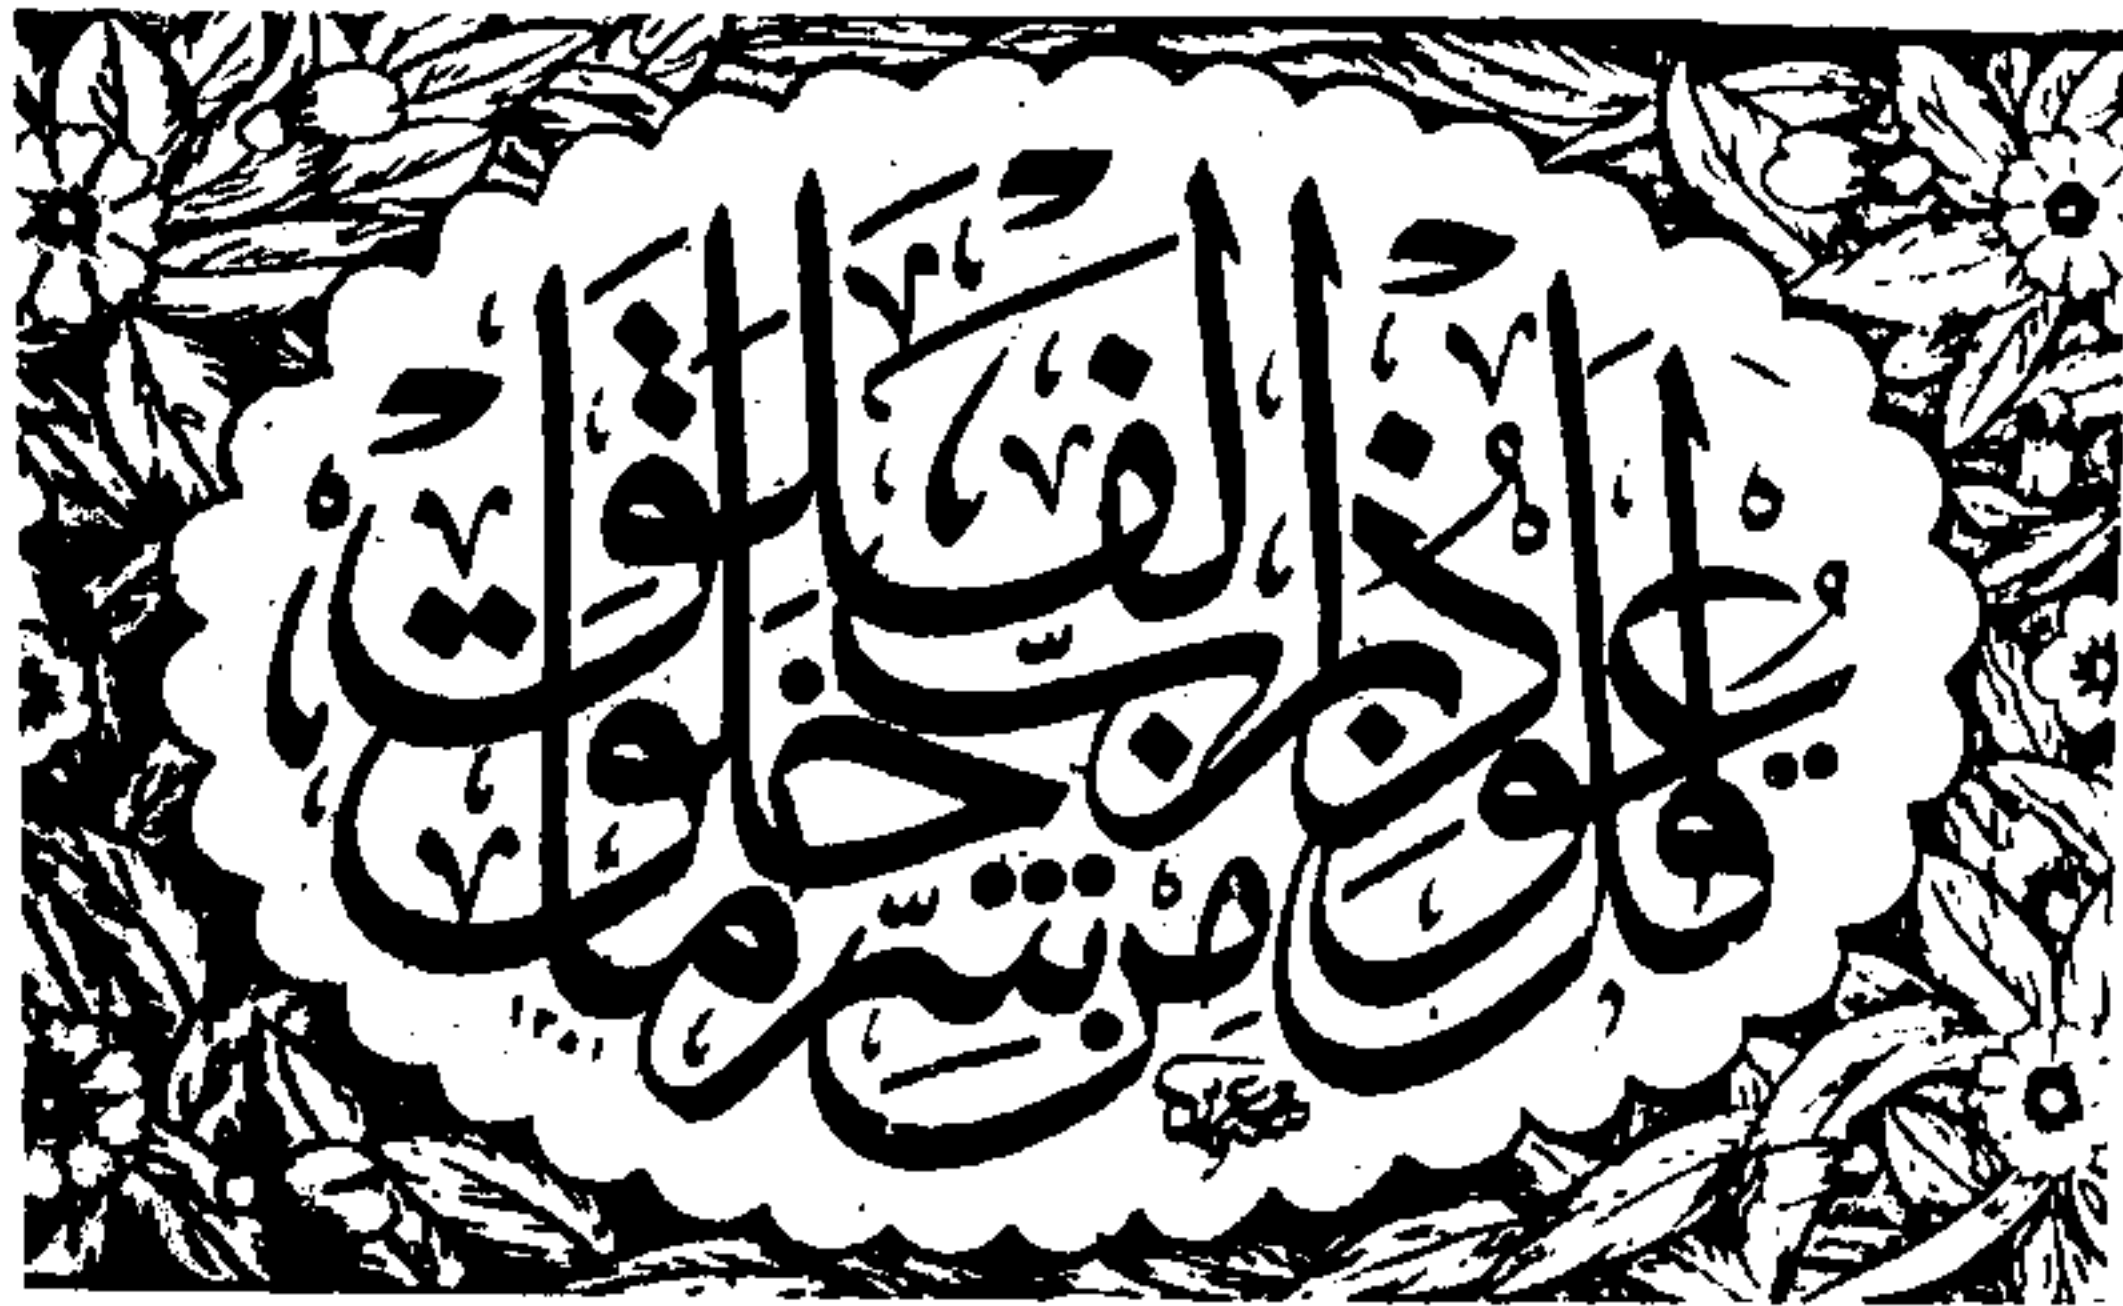 قُلْ أَعُوذُ بِرَبِّ الْفَلَقِ مِنْ شَرِّ مَا خَلَقَ
١٣٥١